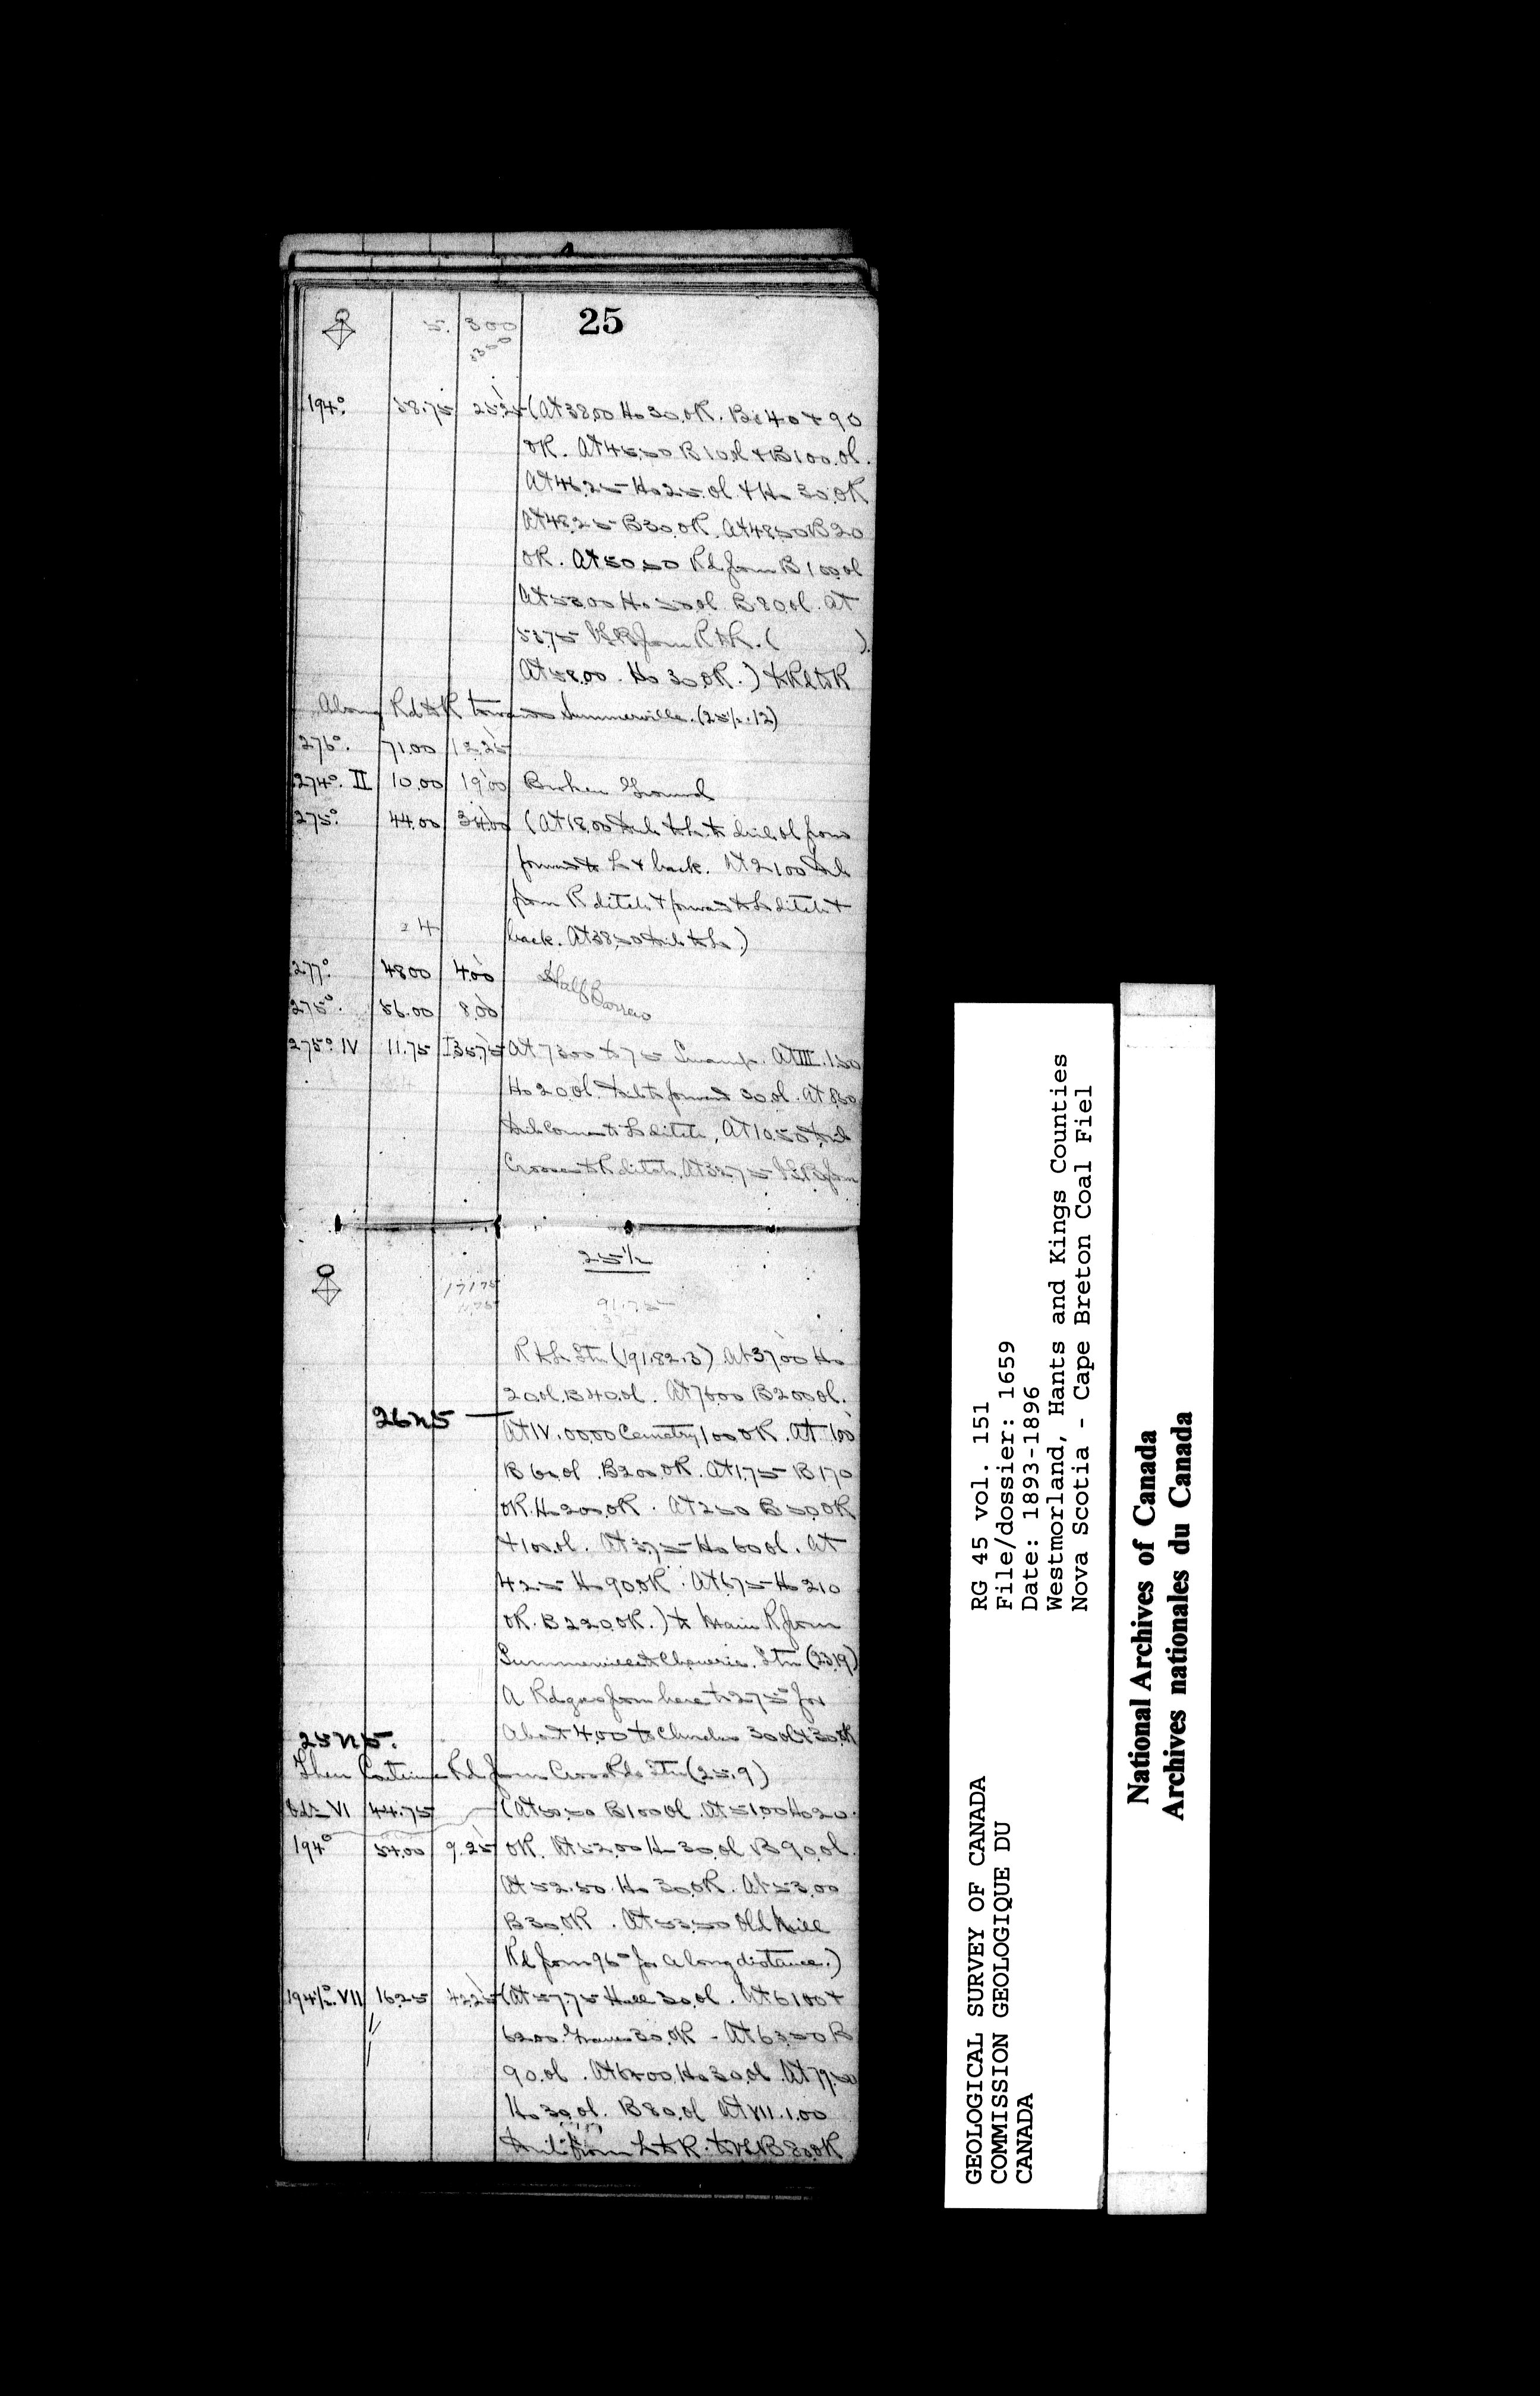 25
5. 300
194° 58.75 25.25 (At 38.00 Ho 30.OR. Bs 40 & 90
OR. At 45.50 B 10.ol & B 100.ol.
At 46.25 Ho 25.ol & Ho 30.OR
At 48.25 B 30.OR. At 48.50 B 20
OR. At 50.50 Rd from B 100.ol
At 53.00 Ho 50.ol B 80.ol. At
58.75 from R to L. ( ).
At 58.00. Ho 30.OR.) to Rd to R
Along Rd to R towards Summerville. (25½.12)
276°. 71.00 12.25
274°. II 10.00 19.00 Broken Ground
275°. 44.00 34.00 (At 18.00 to L. to ol from
forward to L & back. At 21.00
from R ditch & forward to L ditch &
24 back. At 38.50 to L.)
277°. 48.00 4.00 Half Barren
275°. 56.00 8.00
275°. IV 11.75 135.75 At 73.00 to 75 Swamp. At III.1.50
Ho 20.ol. forward 30.ol. At 8.50
comes to L ditch, At 10.50
Crosses to R ditch. At 32.75 from
25½
171.75
11.75
91.75
R to L Stn (191.82.3) At 37.00 Ho
20.ol. B 40.ol. At 76.00 B 200.ol.
26n5 —
At IV.00.00 Cemetry 100.OR. At 1.00
B 60.ol. B 200.OR. At 1.75 B 170
OR. Ho 200.OR. At 2.50 B 50.OR
& 100.ol. At 3.75 Ho 60.ol. At
4.25 Ho 90.OR. At 6.75 Ho 210
OR. B 220.OR.) to Main R from
Summerville to Cheverie. Stn (23.19)
A Rd goes from here to 275° for
About 4.00 to Churches 30.ol & 30.OR
25n5.
Then Continue Rd from Cross Rds Stn (25.9)
Odr VI 44.75 (At 50.50 B 100.ol. At 51.00 Ho 20.
194° 54.00 9.25 OR. At 52.00 Ho 30.ol B 90.ol.
At 52.50. Ho 30.OR. At 53.00
B 30.OR. At 53.50 Old Mill
Rd from 96° for a long distance.)
194½°. VII 16.25 42.25 (At 57.75 Hall 30.ol. At 61.00 &
62.00. 30.OR. At 63.50 B
90.ol. At 64.00 Ho 30.ol. At 79.50
Ho 30.ol. B 80.ol At VII.1.00
from L to R. to B 80.OR
GEOLOGICAL SURVEY OF CANADA
COMMISSION GEOLOGIQUE DU
CANADA
RG 45 vol. 151
File/dossier: 1659
Date: 1893-1896
Westmorland, Hants and Kings Counties
Nova Scotia - Cape Breton Coal Fiel
National Archives of Canada
Archives nationales du Canada